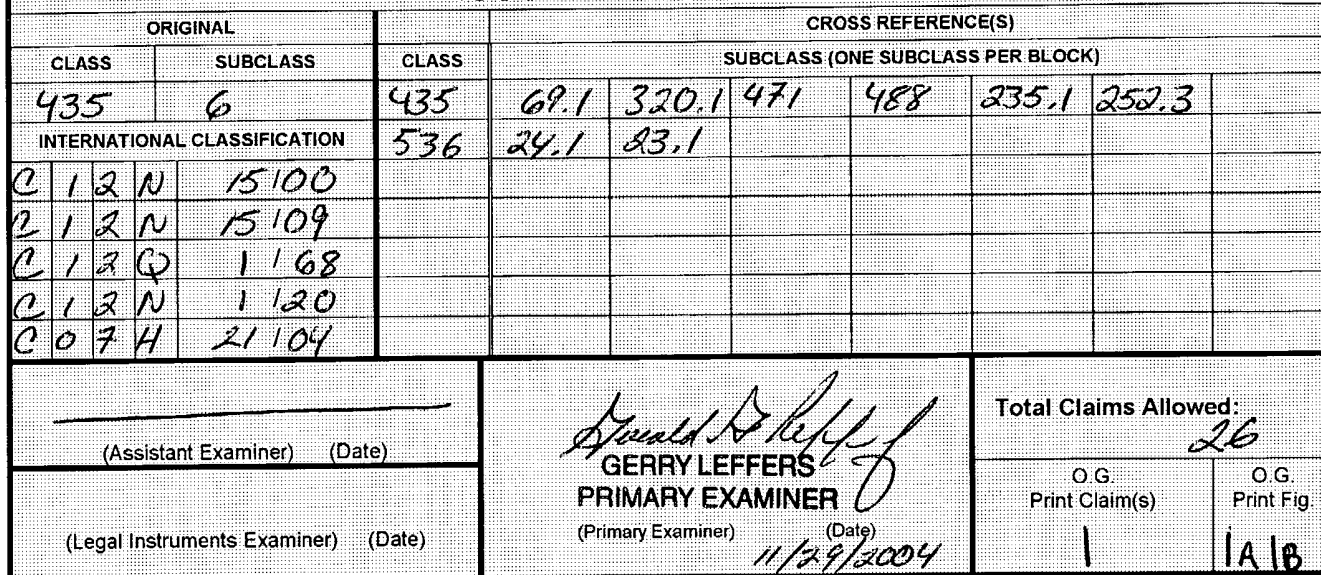 ORIGINAL CROSS REFERENCE(S)
CLASS SUBCLASS CLASS SUBCLASS (ONE SUBCLASS PER BLOCK)
435 6 435 69.1 320.1 471 488 235.1 252.3
INTERNATIONAL CLASSIFICATION 536 24.1 23.1
C 1 2 N 15/00
C 1 2 N 15/09
C 1 2 Q 1/68
C 1 2 N 1/20
C 0 7 H 21/04
(Assistant Examiner) (Date)
(Legal Instruments Examiner) (Date)
GERRY LEFFERS
PRIMARY EXAMINER
(Primary Examiner) (Date)
11/29/2004
Total Claims Allowed:
26
O.G. Print Claim(s)
1
O.G. Print Fig.
1A 1B